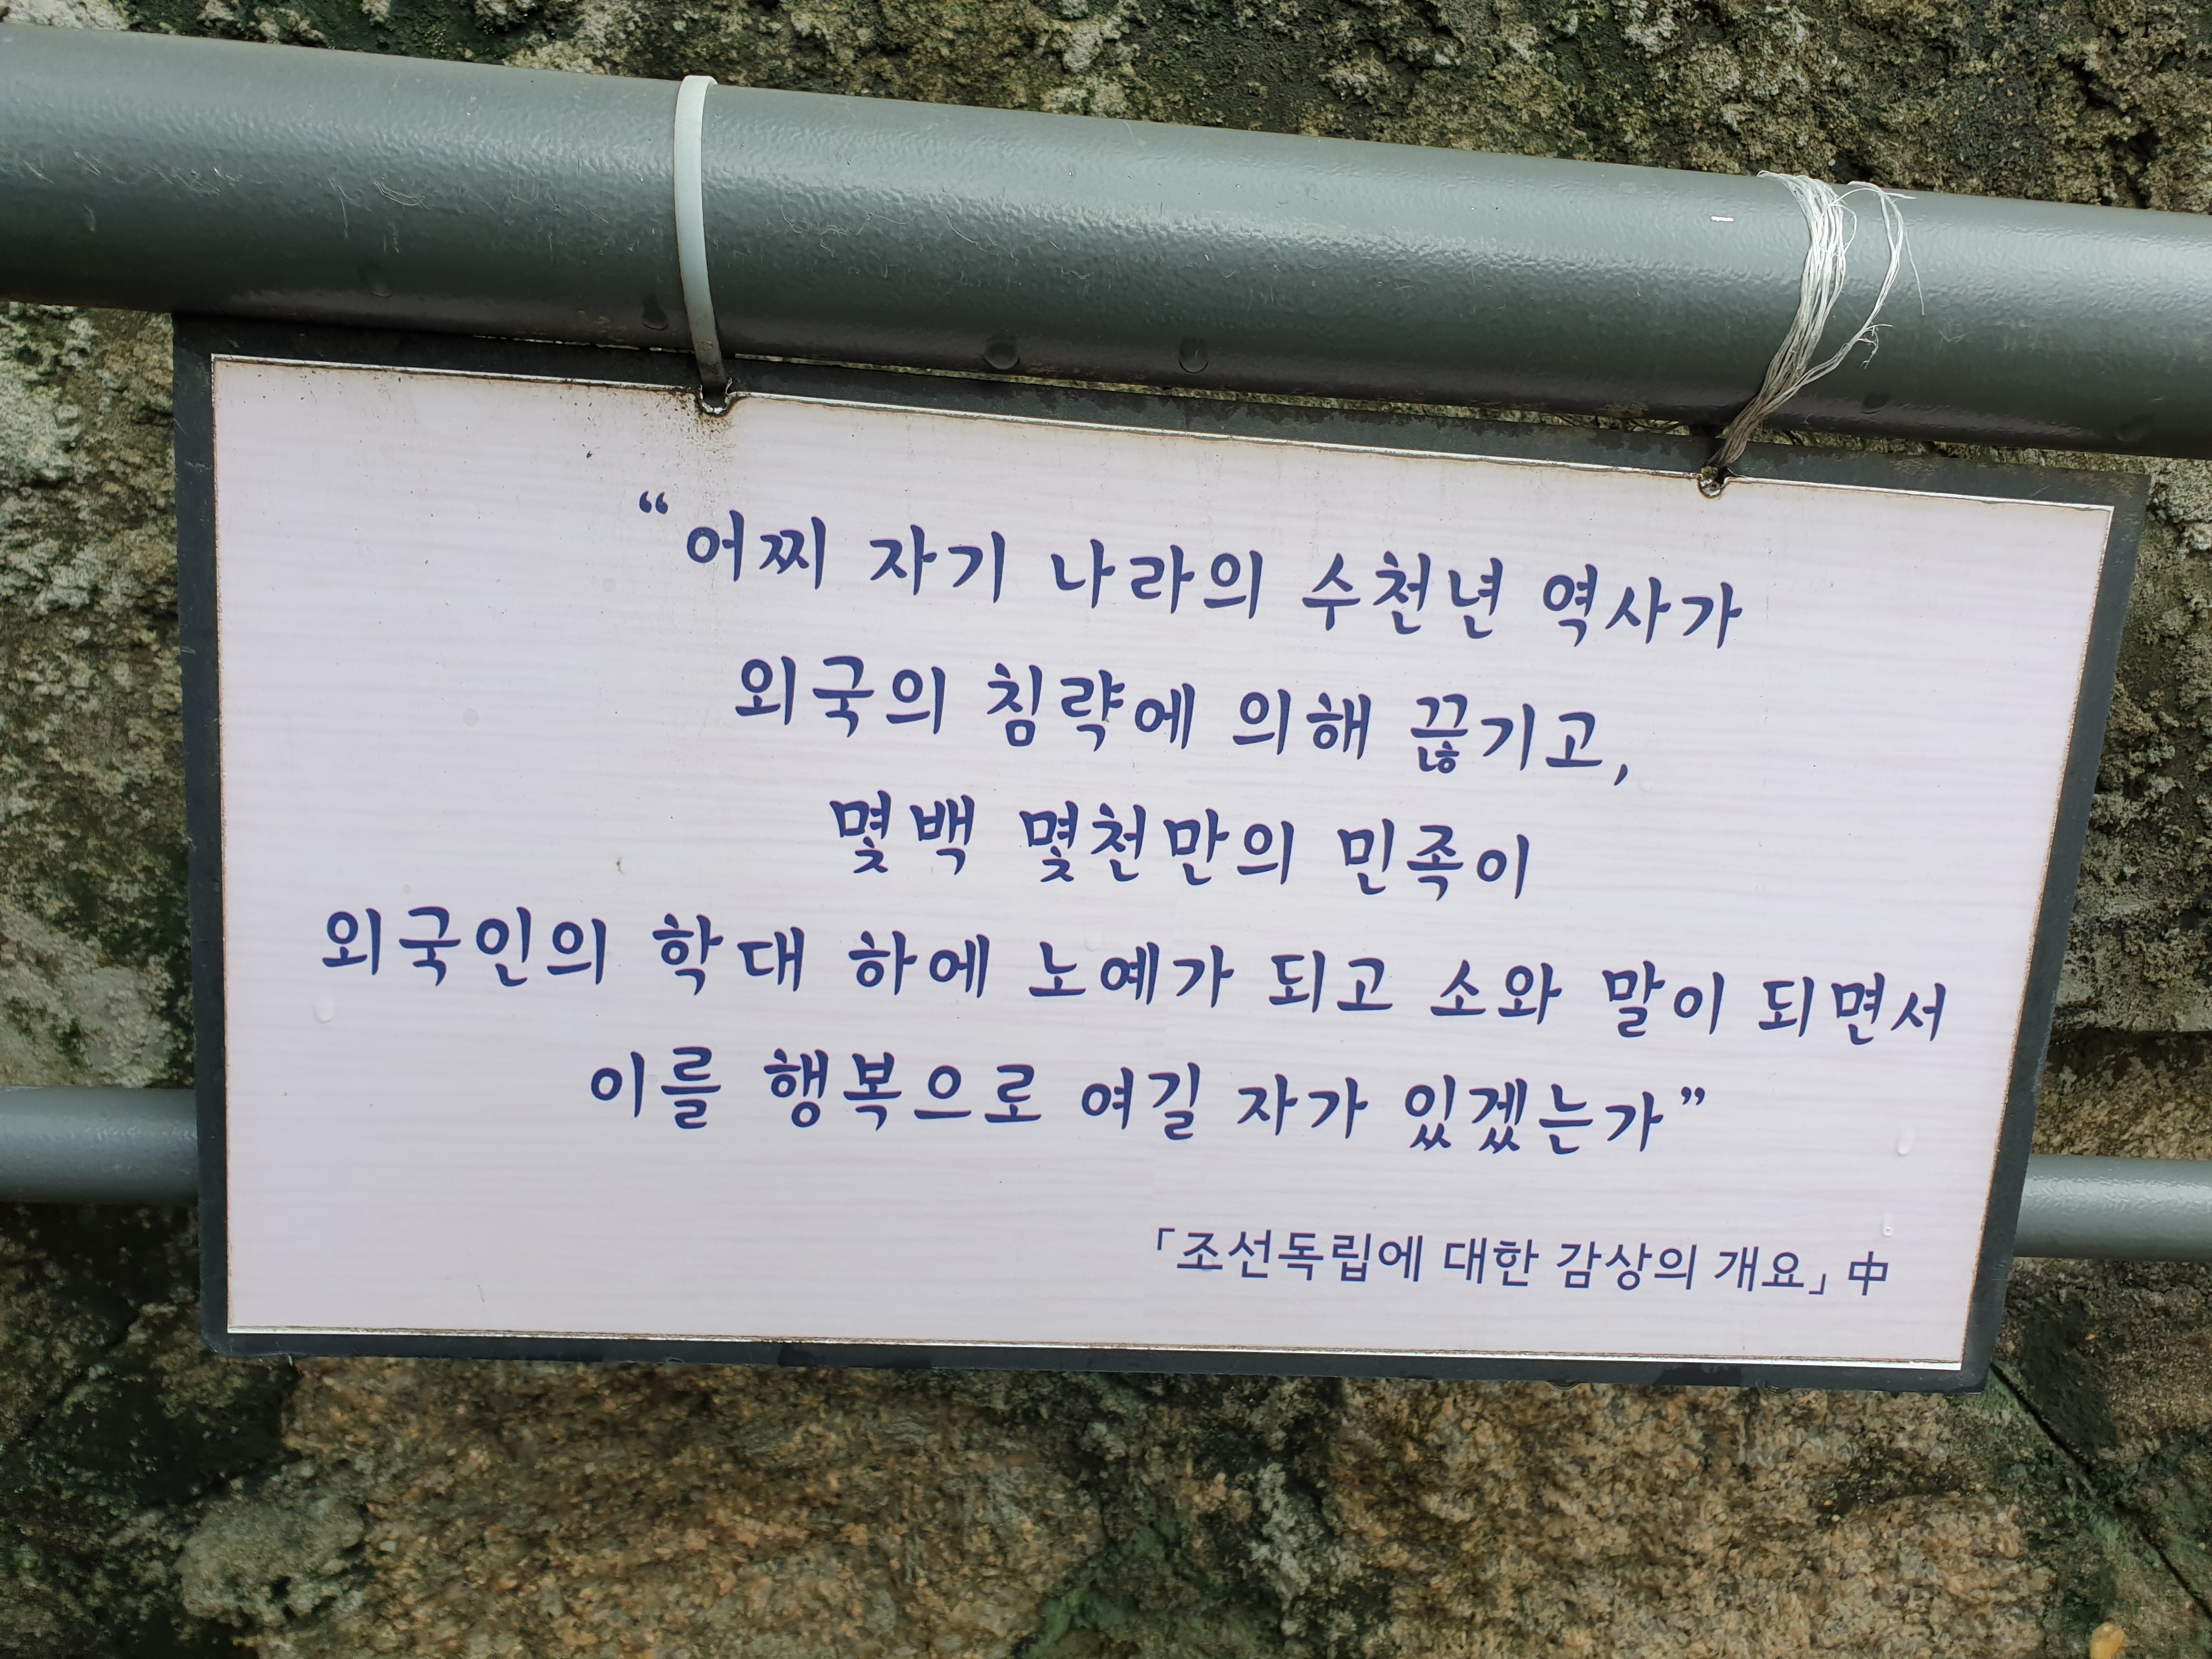 “어찌 자기 나라의 수천년 역사가
외국의 침략에 의해 끊기고,
몇백 몇천만의 민족이
외국인의 학대 하에 노예가 되고 소와 말이 되면서
이를 행복으로 여길 자가 있겠는가”
「조선독립에 대한 감상의 개요」 中